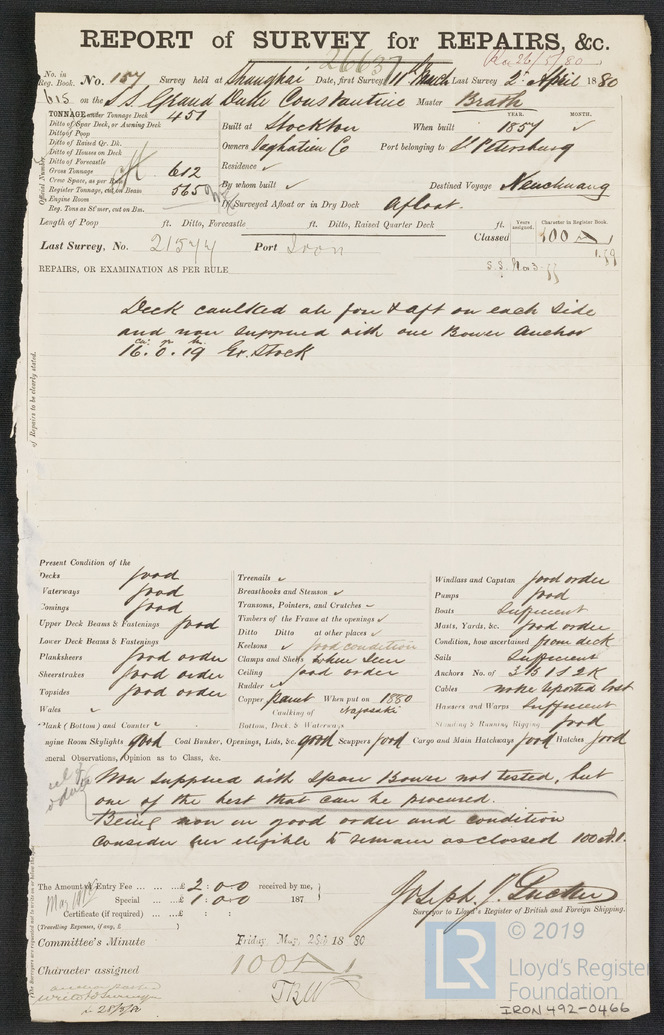 REPORT of SURVEY for REPAIRS, &c.
26637
Rec 26/5/80
No. in Reg. Book. No. 157 Survey held at Shanghai Date, first Survey 11th March Last Survey 2nd April 1880
615 on the S.S. Grand Duke Constantine Master Brath
TONNAGE under Tonnage Deck 451
Ditto of Spar Deck, or Awning Deck
Ditto of Poop
Ditto of Raised Qr. Dk.
Ditto of Houses on Deck
Ditto of Forecastle
Gross Tonnage 612
Crew Space, as per Rule
Register Tonnage, cut on Beam 565
Engine Room
Reg. Tons as St'mer, cut on Bm.
Official Number
Built at Stockton When built 1857
YEAR. MONTH.
Owners Port belonging to St Petersburg
Residence
By whom built Destined Voyage Newchwang
If Surveyed Afloat or in Dry Dock Afloat.
Length of Poop ft. Ditto, Forecastle ft. Ditto, Raised Quarter Deck ft.
Years assigned. Character in Register Book.
Last Survey, No. 21544 Port Iron Classed 100 A 1
REPAIRS, OR EXAMINATION AS PER RULE
S.S. No 3
Deck caulked all fore & aft on each side
and now supplied with one Bower Anchor
16. 0. 19 Ex. Stock
of Repairs to be clearly stated.
Present Condition of the
Decks good
Waterways good
Comings good
Upper Deck Beams & Fastenings good
Lower Deck Beams & Fastenings
Planksheers good order
Sheerstrakes good order
Topsides good order
Wales
Plank (Bottom) and Counter
Treenails
Breasthooks and Stemson
Transoms, Pointers, and Crutches
Timbers of the Frame at the openings
Ditto Ditto at other places
Keelsons good condition
Clamps and Shelfs when seen
Ceiling good order
Rudder
Copper paint When put on 1880
Caulking of Nagasaki
Bottom, Deck, & Waterways
Windlass and Capstan good order
Pumps good
Boats Sufficient
Masts, Yards, &c. good order
Condition, how ascertained from deck
Sails Sufficient
Anchors No. of 3 B 1 S 2 K
Cables none reported lost
Hawsers and Warps Sufficient
Standing & Running Rigging good
Engine Room Skylights good Coal Bunker, Openings, Lids, &c. good Scuppers good Cargo and Main Hatchways good Hatches good
General Observations, Opinion as to Class, &c.
Now supplied with Spare Bower not tested, but
one of the best that can be procured.
Being now in good order and condition
consider her eligible to remain as classed 100 A.1.
The Amount of Entry Fee £ 2 : 0 0 received by me,
Special £ 1 : 0 0 187
Certificate (if required) £ : :
(Travelling Expenses, if any, £ )
Joseph J. Tucker
Surveyor to Lloyd's Register of British and Foreign Shipping.
Committee's Minute Friday May 28th 1880
Character assigned 100 A 1
in 28/5/80
© 2019
LR
Lloyd's Register
Foundation
IRON 492-0466